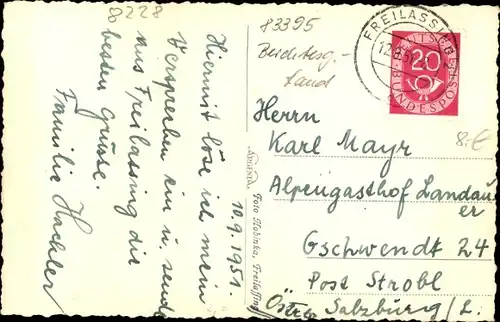 8228
10.9.1951.
Hiermit löse ich mein
Versprechen ein u. sende
aus Freilassing die
besten Grüsse.
Familie Hachler
83395
Berchtesg.-
Land
FREILASSING
DEUTSCHE BUNDESPOST
20
8.€
Herrn
Karl Mayr
Alpengasthof Landau-
er
Gschwendt 24
Post Strobl
Salzburg/L.
Foto Nobinka, Freilassing